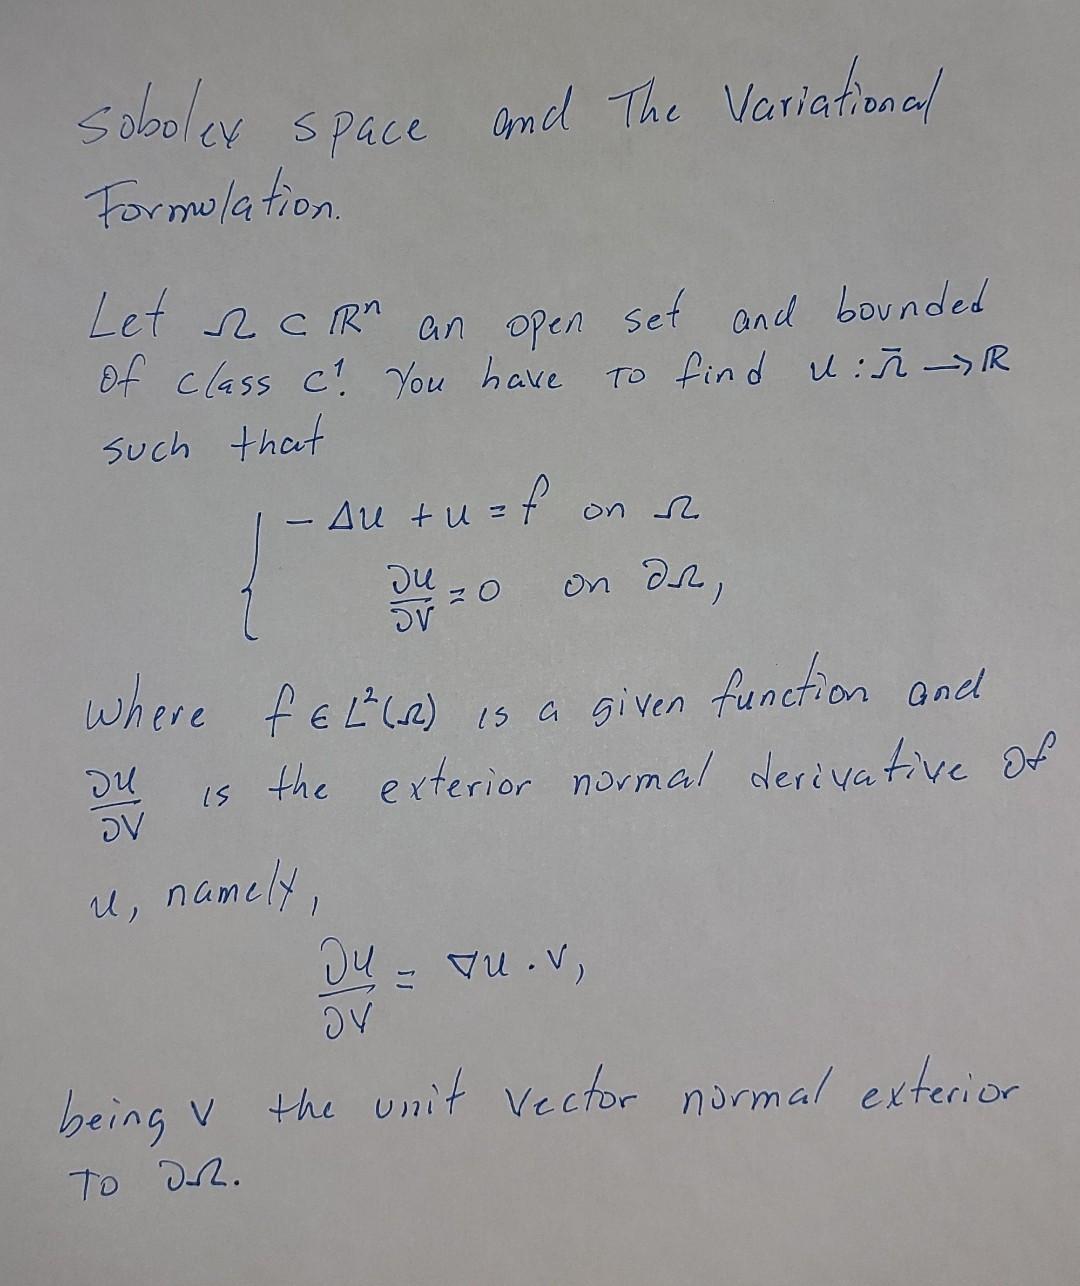 Sobolev space and The Variational
Formulation.
Let Ω ⊂ ℝⁿ an open set and bounded
of class C¹. You have to find u : Ω̄ → ℝ
such that
{ -Δu + u = f on Ω
∂u/∂ν = 0 on ∂Ω,
where f ∈ L²(Ω) is a given function and
∂u/∂ν is the exterior normal derivative of
u, namely,
∂u/∂ν = ∇u . ν,
being ν the unit vector normal exterior
To ∂Ω.